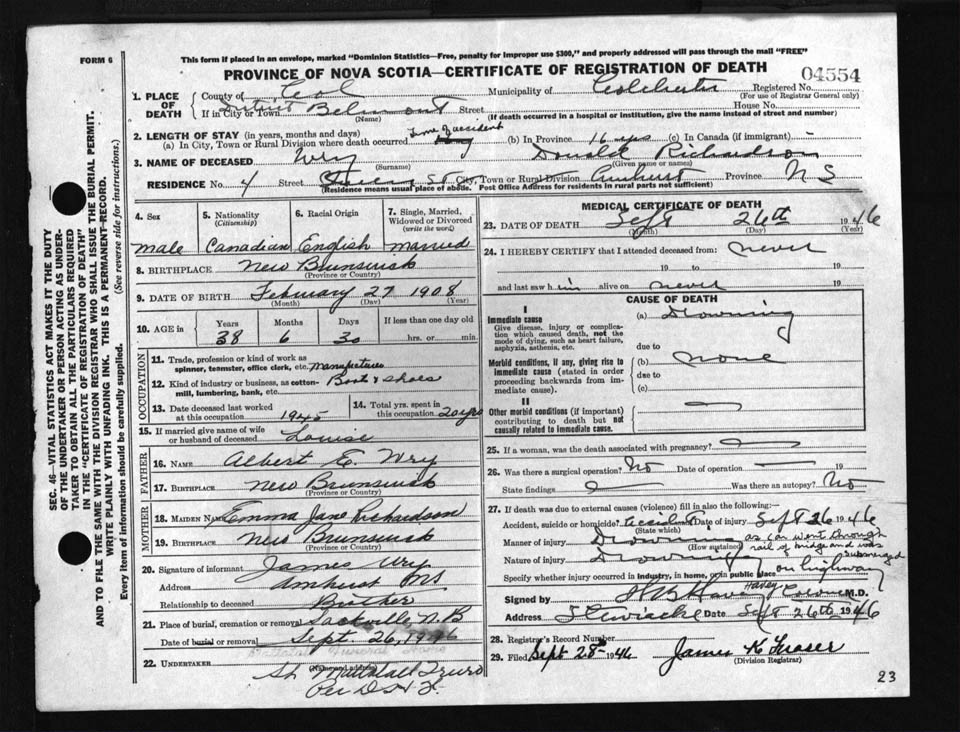 FORM 6
This form if placed in an envelope, marked "Dominion Statistics—Free, penalty for improper use $300," and properly addressed will pass through the mail "FREE"
PROVINCE OF NOVA SCOTIA—CERTIFICATE OF REGISTRATION OF DEATH
04554
1. PLACE OF DEATH
County of Col
Municipality of Colchester
Registered No.
(For use of Registrar General only)
District
If in City or Town Belmont Street House No.
(Name) (If death occurred in a hospital or institution, give the name instead of street and number)
2. LENGTH OF STAY (in years, months and days)
(a) In City, Town or Rural Division where death occurred Time of accident (b) In Province 16 yrs (c) In Canada (if immigrant)
3. NAME OF DECEASED Wry Donald Richardson
(Surname) (Given name or names)
RESIDENCE No. 4 Street St City, Town or Rural Division Amherst Province N S
(Residence means usual place of abode. Post Office Address for residents in rural parts not sufficient)
SEC. 46—VITAL STATISTICS ACT MAKES IT THE DUTY
OF THE UNDERTAKER OR PERSON ACTING AS UNDER-
TAKER TO OBTAIN ALL THE PARTICULARS REQUIRED
IN THE "CERTIFICATE OF REGISTRATION OF DEATH"
AND TO FILE THE SAME WITH THE DIVISION REGISTRAR WHO SHALL ISSUE THE BURIAL PERMIT.
WRITE PLAINLY WITH UNFADING INK. THIS IS A PERMANENT RECORD.
Every item of information should be carefully supplied. (See reverse side for instructions.)
4. Sex
male
5. Nationality
(Citizenship)
Canadian
6. Racial Origin
English
7. Single, Married, Widowed or Divorced
(write the word)
married
8. BIRTHPLACE New Brunswick
(Province or Country)
9. DATE OF BIRTH February 27 1908
(Month) (Day) (Year)
10. AGE in Years Months Days If less than one day old
38 6 30 hrs. or min.
OCCUPATION
11. Trade, profession or kind of work as
spinner, teamster, office clerk, etc. manufacturer
12. Kind of industry or business, as cotton-
mill, lumbering, bank, etc. Boots & shoes
13. Date deceased last worked
at this occupation 1945
14. Total yrs. spent in
this occupation 20 yrs
15. If married give name of wife
or husband of deceased Louise
FATHER
16. NAME Albert E. Wry
17. BIRTHPLACE New Brunswick
(Province or Country)
MOTHER
18. MAIDEN NAME Emma Jane Richardson
19. BIRTHPLACE New Brunswick
(Province or Country)
20. Signature of informant James Wry
Address Amherst NS
Relationship to deceased Brother
21. Place of burial, cremation or removal Sackville, N.B
Date of burial or removal Sept. 26, 1946
Mattatall Funeral Home
22. UNDERTAKER
(Name and address)
Mattatall Truro
Per
MEDICAL CERTIFICATE OF DEATH
23. DATE OF DEATH Sept 26th 1946
(Month) (Day) (Year)
24. I HEREBY CERTIFY that I attended deceased from: never
19 to 19
and last saw him alive on never 19
CAUSE OF DEATH
I
Immediate cause
Give disease, injury or complica-
tion which caused death, not the
mode of dying, such as heart failure,
asphyxia, asthenia, etc.
(a) Drowning
due to
Morbid conditions, if any, giving rise to
immediate cause (stated in order
proceeding backwards from im-
mediate cause).
(b) none
due to
(c)
II
Other morbid conditions (if important)
contributing to death but not
causally related to immediate cause.
25. If a woman, was the death associated with pregnancy?
26. Was there a surgical operation? No Date of operation — 19
State findings Was there an autopsy? No
27. If death was due to external causes (violence) fill in also the following:
Accident, suicide or homicide? accident Date of injury Sept 26 1946
(State which)
Manner of injury Drowning as car went through
(How sustained) rail of bridge and was
Nature of injury Drowning submerged
Specify whether injury occurred in industry, in home, or in public place on highway
Signed by M.D.
Address Stewiacke Date Sept 26th 1946
28. Registrar's Record Number
29. Filed Sept 28th 1946 James K Fraser
(Division Registrar)
23